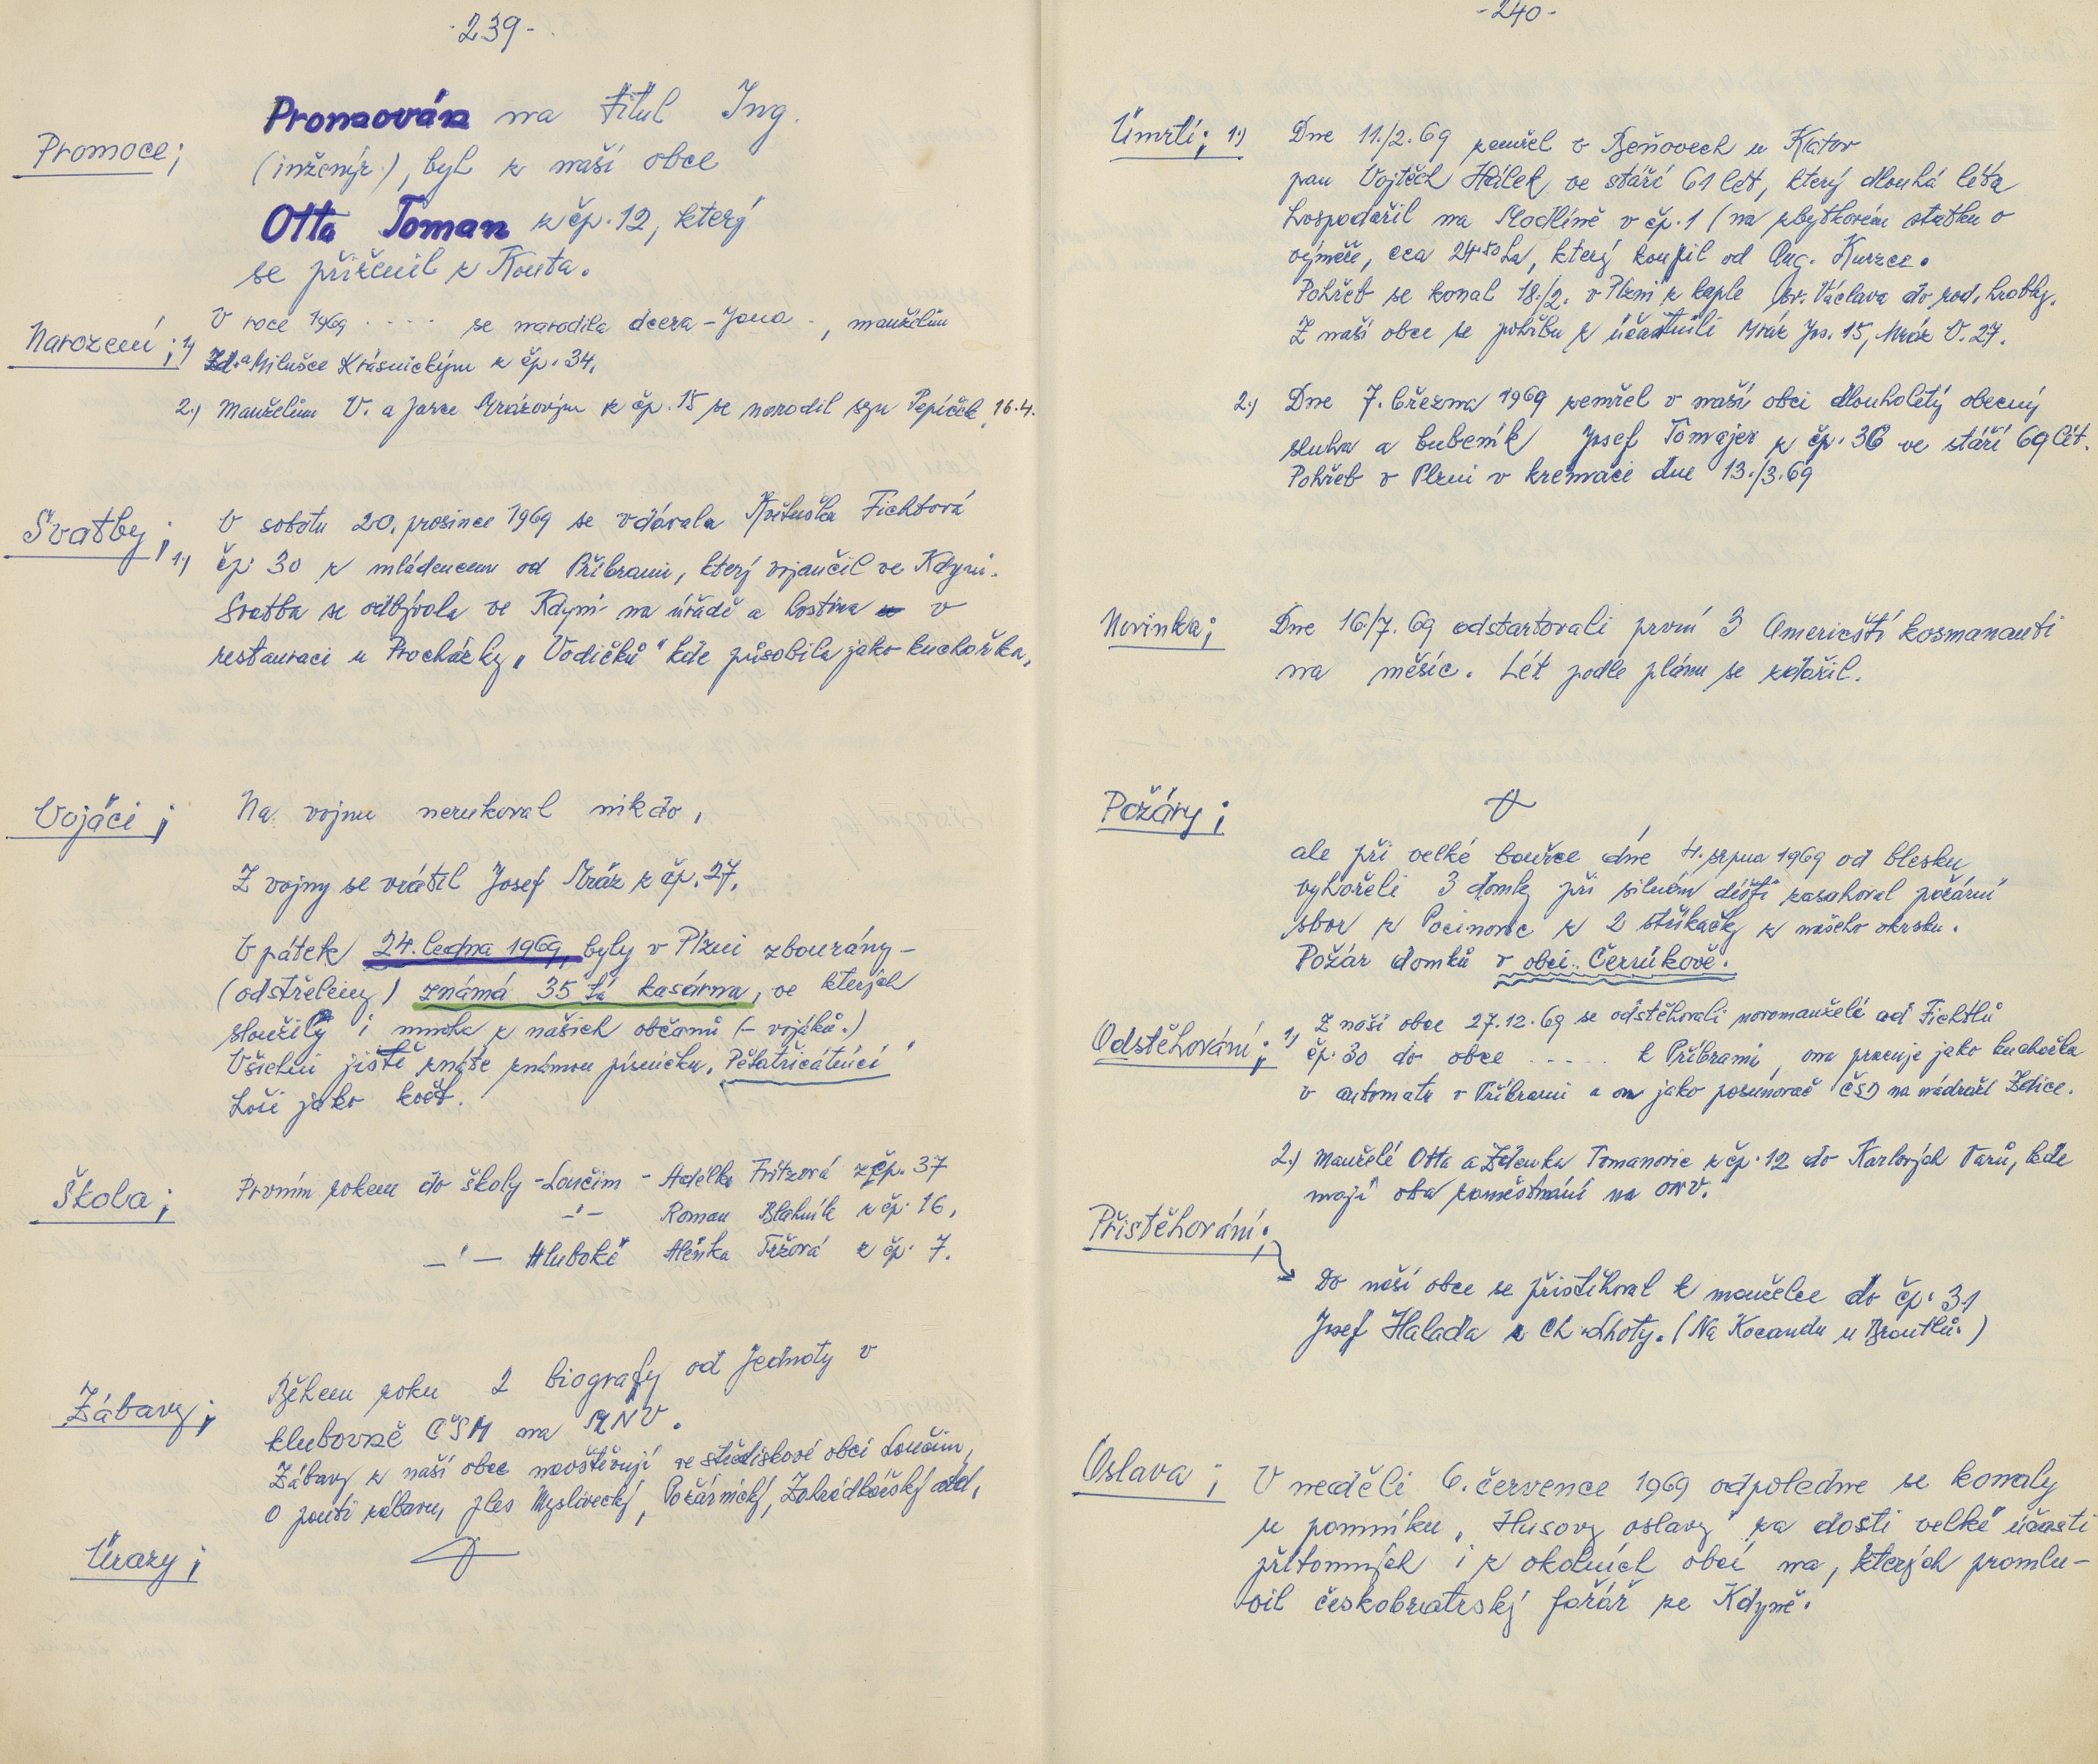 -239-
Promoce;
Promován na titul Ing.
(inženýr), byl z naší obce
Otta Toman z čp. 12, který
se přiženil z Kouta.
Narození; 1)
V roce 1969 ..... se narodila dcera - Jana -, manželům
Zd. a Milušce Krásnickým z čp. 34.
2.) Manželům V. a Jarce Mrázovým z čp. 15 se narodil syn Pepíček, 16.4.
Svatby; 1.)
V sobotu 20. prosince 1969 se vdávala Květuška Fichtová
čp. 30 z mládencem od Příbrami, který vojančil ve Kdyni.
Svatba se odbývala ve Kdyni na úřadě a hostina v
restauraci u Procházky „Vodičků" kde působila jako kuchařka,
Vojáci;
Na vojnu nerukoval nikdo,
Z vojny se vrátil Josef Mráz z čp. 27.
V pátek 24. ledna 1969, byly v Plzni zbourány -
(odstřeleny) známá 35 tá kasárna, ve kterých
sloužily i mnoha z našich občanů (- vojáků.)
Všichni jistě znáte známou písničku, Pětatřicátníci"
hoši jako květ.
Škola;
Prvním rokem do školy - Loučim - Adélka Fritzová z čp. 37
-"- Roman Blahník z čp. 16,
-"- Hluboké Alenka Tržová z čp. 7.
Zábavy;
Během roku 2 biografy od Jednoty v
klubovně ČSM na MNV.
Zábavy z naší obce navštěvují ve střediskové obci Loučim,
O pouti zábavu, ples Myslivecký, Požárnický, Zahrádkářský atd,
Úrazy;
-240-
Úmrtí; 1.)
Dne 11./2. 69 zemřel v Beňovech u Klatov
pan Vojtěch Hálek ve stáří 61 let, který dlouhá léta
hospodařil na Modlíně v čp. 1 (na zbytkovém statku o
výměře, cca 24.50 ha, který koupil od Aug. Kurzce.
Pohřeb se konal 18./2. v Plzni z kaple sv. Václava do rod. hrobky.
Z naší obce se pohřbu z účastnili Mráz Jos. 15, Mráz V. 27.
2.) Dne 7. března 1969 zemřel v naší obci dlouholetý obecný
sluha a bubeník Josef Tomajer z čp. 36 ve stáří 69 let.
Pohřeb v Plzni v kremaci dne 13./3. 69
Novinka;
Dne 16/7. 69 odstartovali první 3 Američtí kosmonauti
na měsíc. Let podle plánu se zdařil.
Požáry;
ale při velké bouřce dne 4. srpna 1969 od blesku
vyhořeli 3 domky při silném dešti zasahoval požární
sbor z Pocinovic z 2 stříkačky z našeho okrsku.
Požár domků v obci Černíkově.
Odstěhování; 1)
Z naší obce 27.12.69 se odstěhovali novomanželé od Fichtlů
čp. 30 do obce ..... k Příbrami, ona pracuje jako kuchařka
v automatu v Příbrami a on jako posunovač ČSD na nádraží Zdice.
2.) Manželé Otta a Zdenka Tomanovic z čp. 12 do Karlových Varů, kde
mají oba zaměstnání na ONV.
Přistěhování;
Do naší obce se přistěhoval k manželce do čp. 31
Josef Halada z Ch. Lhoty. (Na Kocandu u Brantlů.)
Oslava;
V neděli 6. července 1969 odpoledne se konaly
u pomníku „Husovy oslavy" za dosti velké účasti
přítomných i z okolních obcí na, kterých promlu-
vil českobratrský farář ze Kdyně.